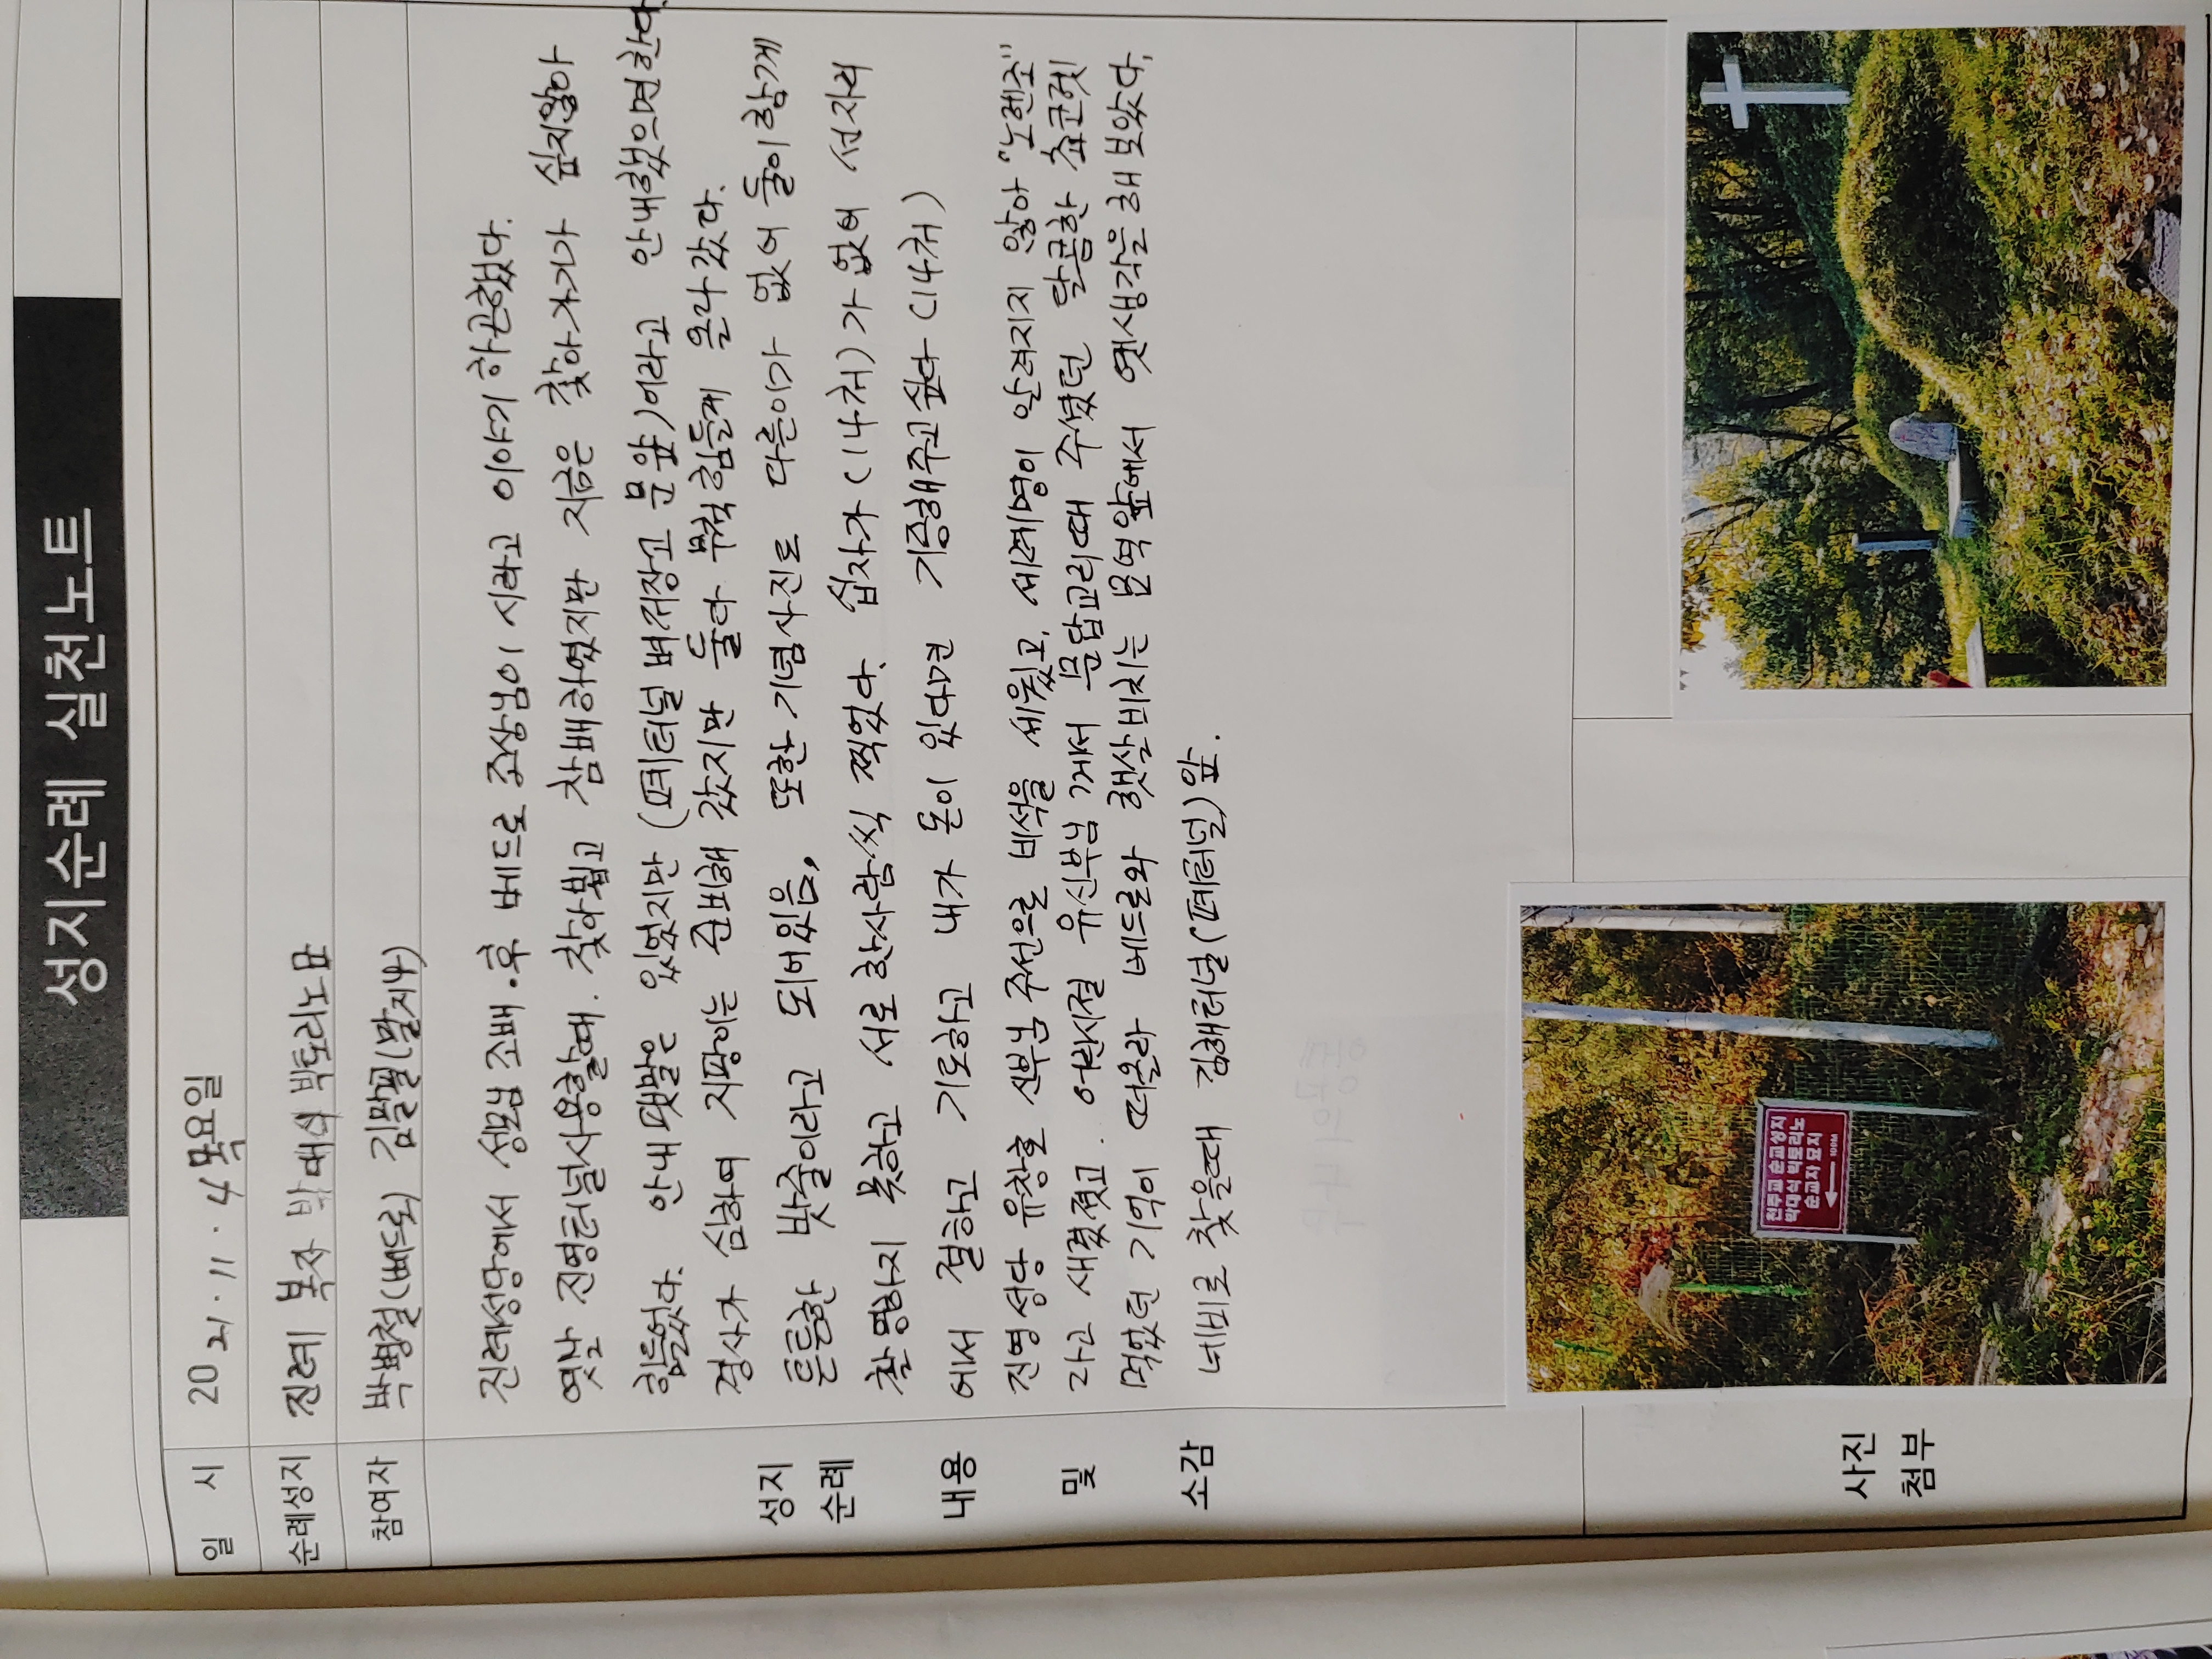 성지순례 실천노트
일 시 2021.11.4 목요일
순례성지 진례 복자 박대식 빅토리노묘
참여자 박병철(베드로) 김말필(말지나)
진례성당에서 성모님 조배.후 베드로 조상님이 시라고 이야기 하곤했다.
옛날 진영터널사용할때. 찾아뵙고 참배하였지만 지금은 찾아가기가 쉽지않아
힘들었다. 안내팻말은 있었지만 (폐터널 벼저장고 문앞)이라고 안내했으면한다.
경사가 심하여 지팡이는 준비해 갔지만 둘다 무척힘들게 올라갔다.
튼튼한 밧줄이라고 되어있음, 또한 기념사진도 다른이가 없어 둘이함께
촬영하지 못하고 서로 한사람씩 찍었다. 십자가 (14처)가 없어 성지의
에서 절하고 기도하고 내가 돈이 있다면 기증해주고싶다 (14처)
진영성당 유창호 신부님 주선으로 비석을 세웠고, 세례명이 알려지지 않아 "로렌조"
라고 새겼졌고. 어린시절 유신부님 께서 문답교리때 주셨던 달콤한
먹었던 기억이 떠올라 베드로와 햇살비치는 묘역앞에서 옛생각을해보았다.
네비로 찾을때 김해터널(폐터널)앞.
성지
순례
내용
및
소감
사진
첨부
천주교 순교성지
박대식 빅토리노
순교자 묘지
← 100M